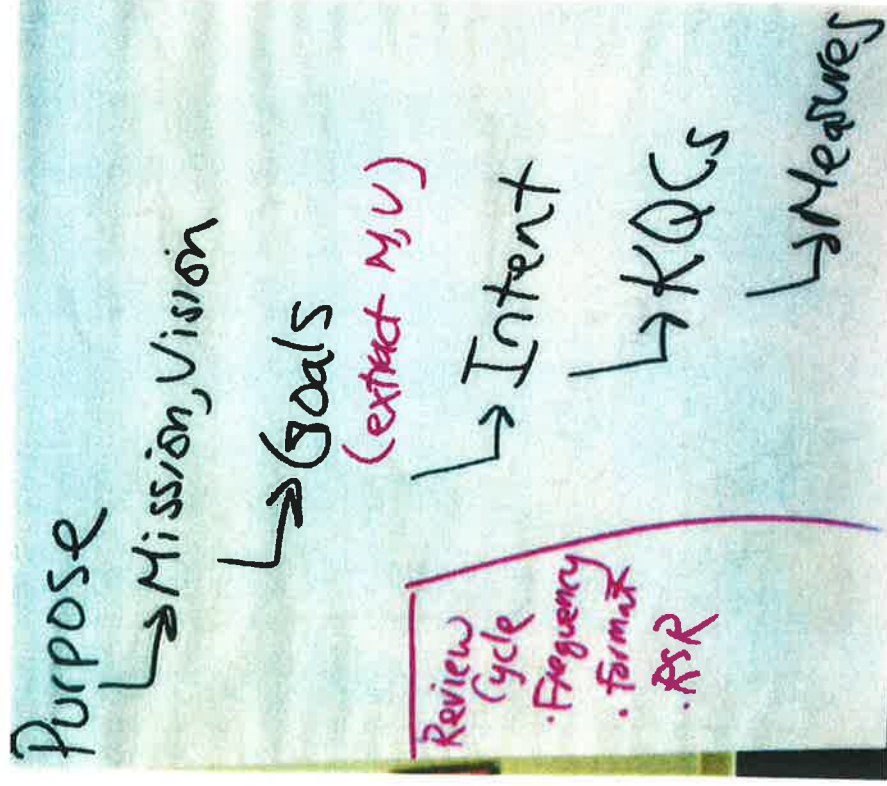 Purpose
↳ Mission, Vision
↳ Goals
(extract M,V)
↳ Intent
↳ KQCs
↳ Measures
Review
Cycle
· Frequency
· Format
· RSR